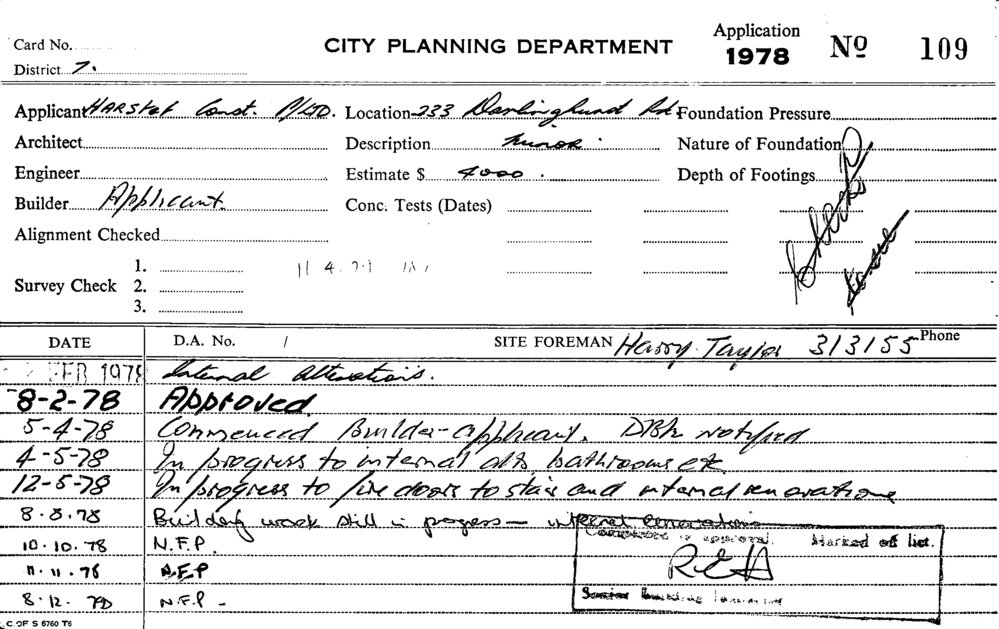 Card No.
CITY PLANNING DEPARTMENT
Application
1978 Nº 109
District 7.
Applicant HARSTOF Const. P/LTD. Location 233 Darlinghurst Rd. Foundation Pressure
Architect Description Minor. Nature of Foundation
Engineer Estimate $ 4000. Depth of Footings
Builder Applicant. Conc. Tests (Dates)
Alignment Checked
1.
Survey Check 2.
3.
DATE D.A. No. / SITE FOREMAN Harry Taylor 313155 Phone
FEB 1978 Internal alterations.
8-2-78 Approved.
5-4-78 Commenced Builder-applicant. DBK notified
4-5-78 In progress to internal alts, bathrooms etc
12-5-78 In progress to fire doors to stair and internal renovations
8.8.78 Building work still in progess - internal renovations
10.10.78 N.F.P.
Marked off list.
11.11.78 N.F.P
REH
8.12.78 N.F.P -
Senior Building
C OF S 6760 T6